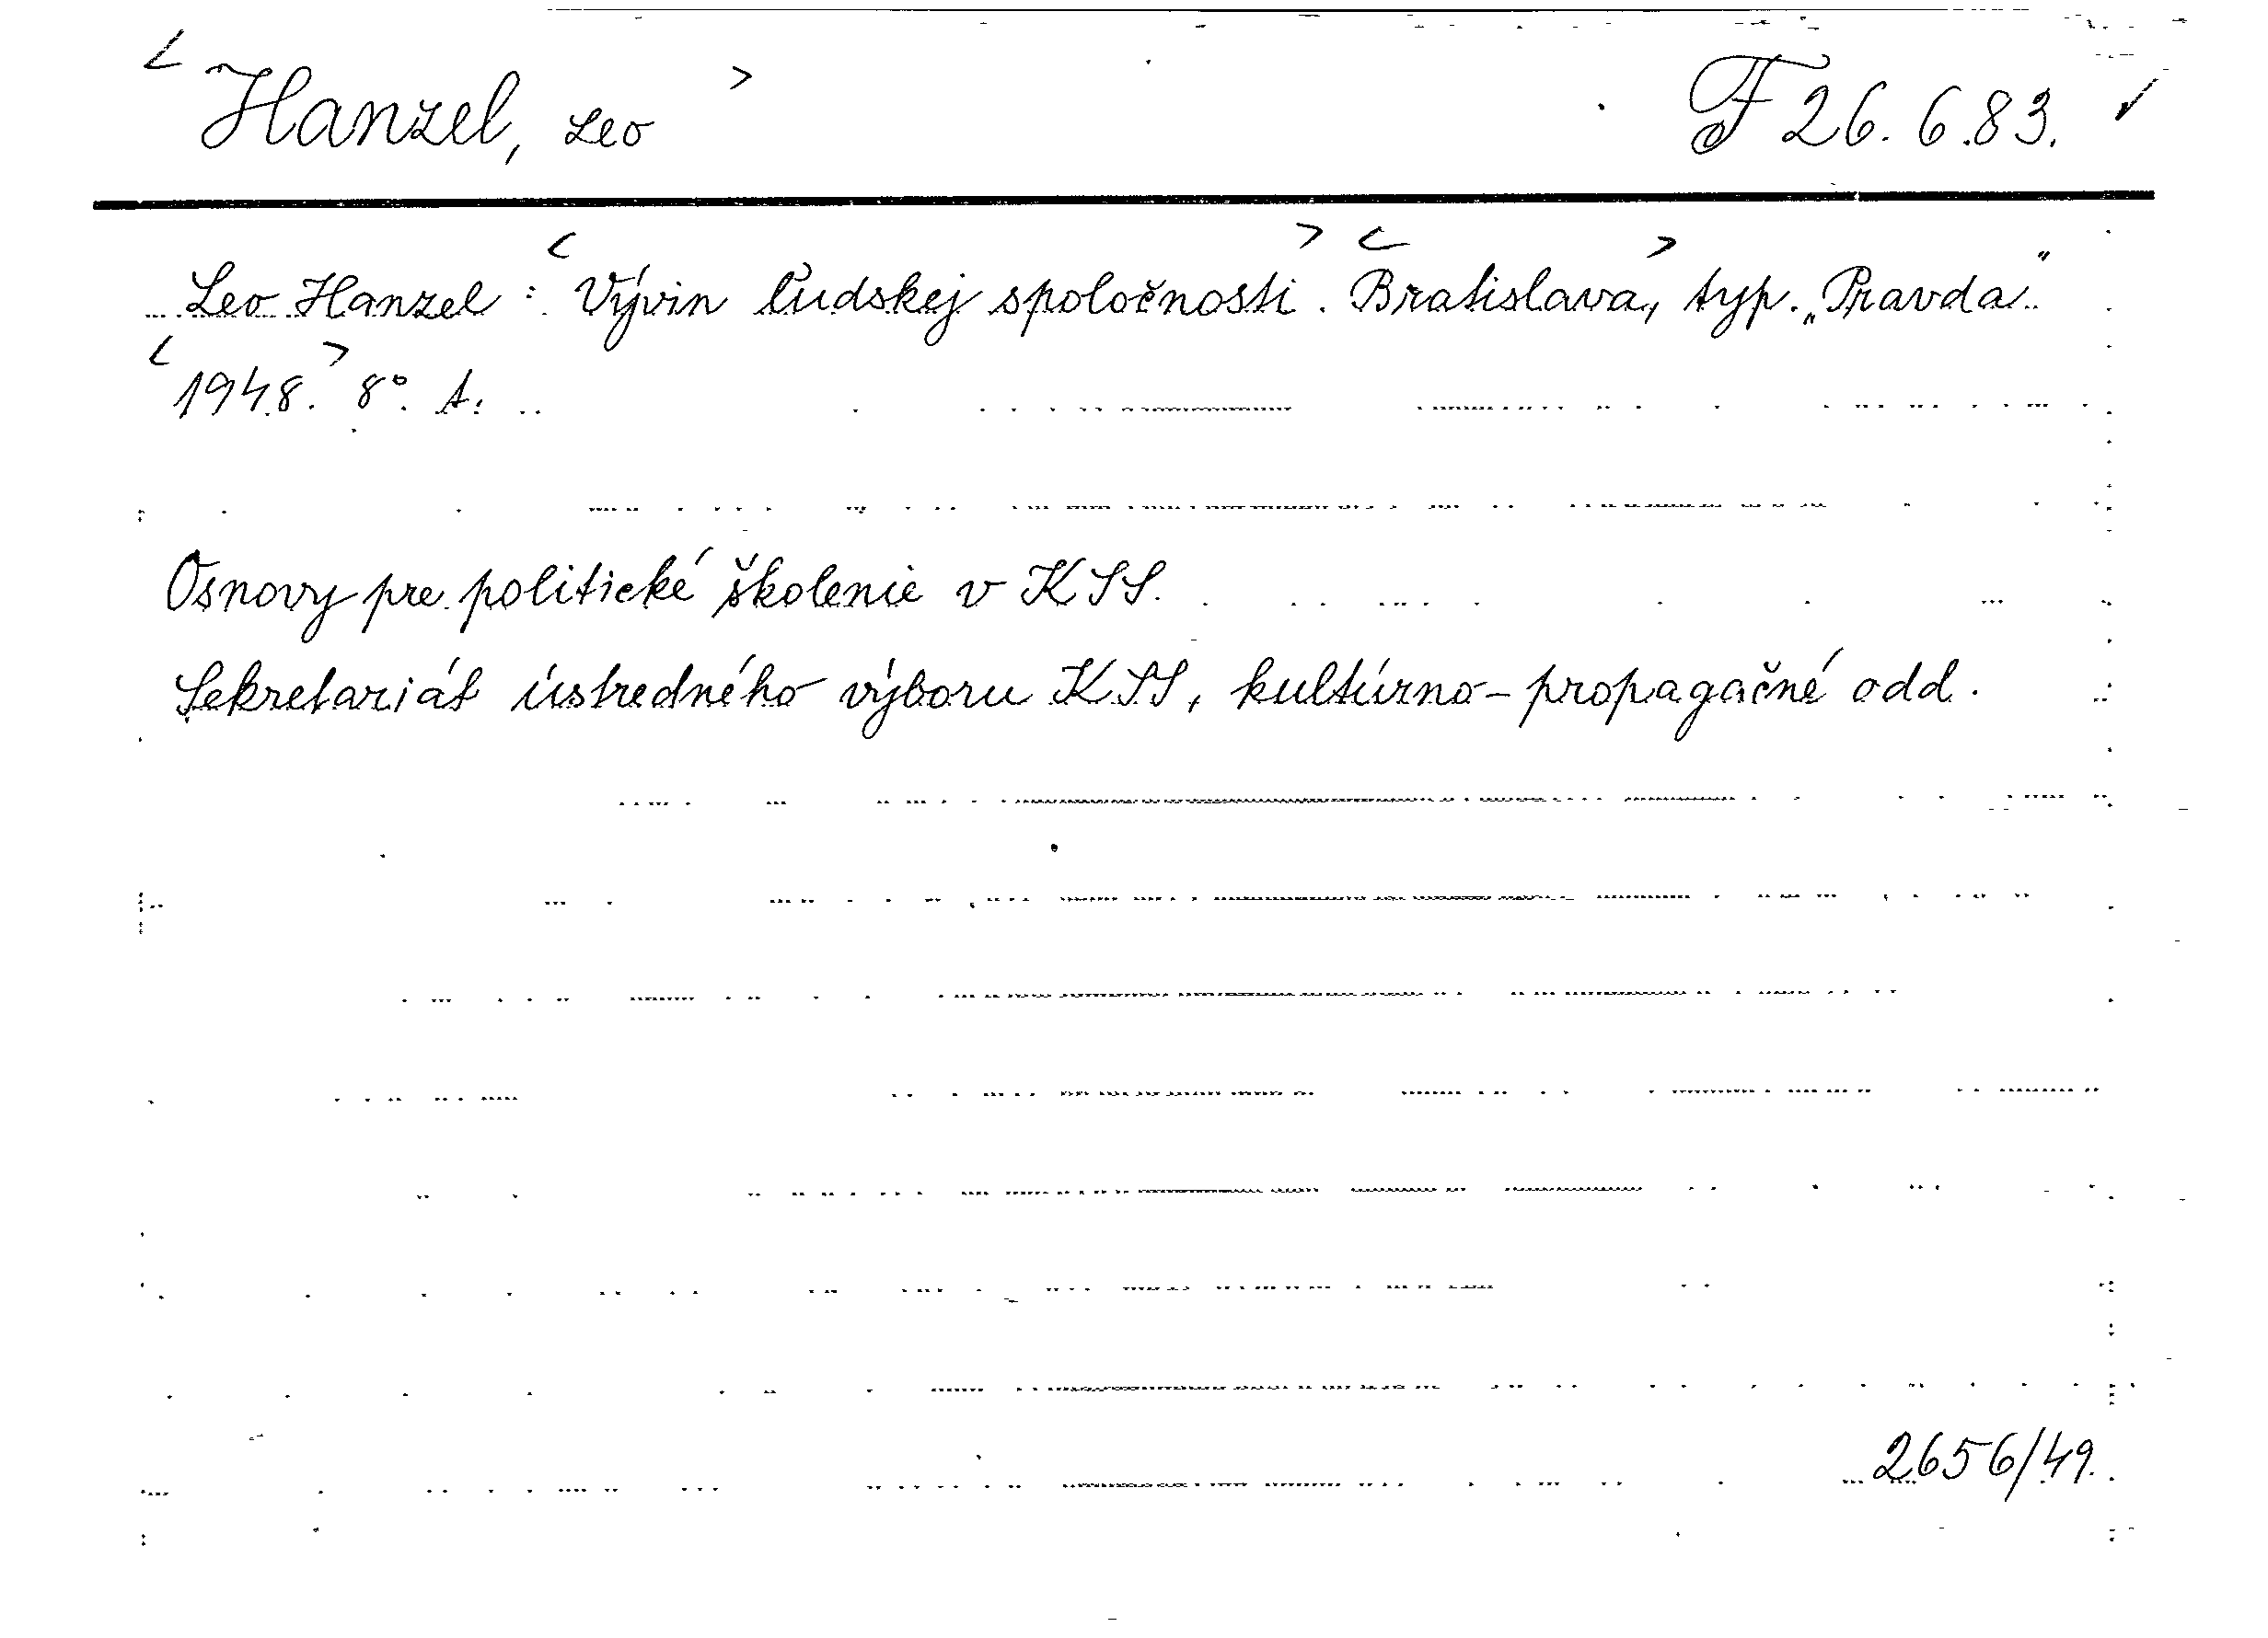 < Hanzel, Leo > F 26.6.83. ✓
Leo Hanzel : < Vývin ľudskej spoločnosti. > < Bratislava, > typ. „Pravda"
< 1948. > 8°. A.
Osnovy pre politické školenie v KSS.
Sekretariát ústredného výboru KSS, kultúrno-propagačné odd.
2656/49.